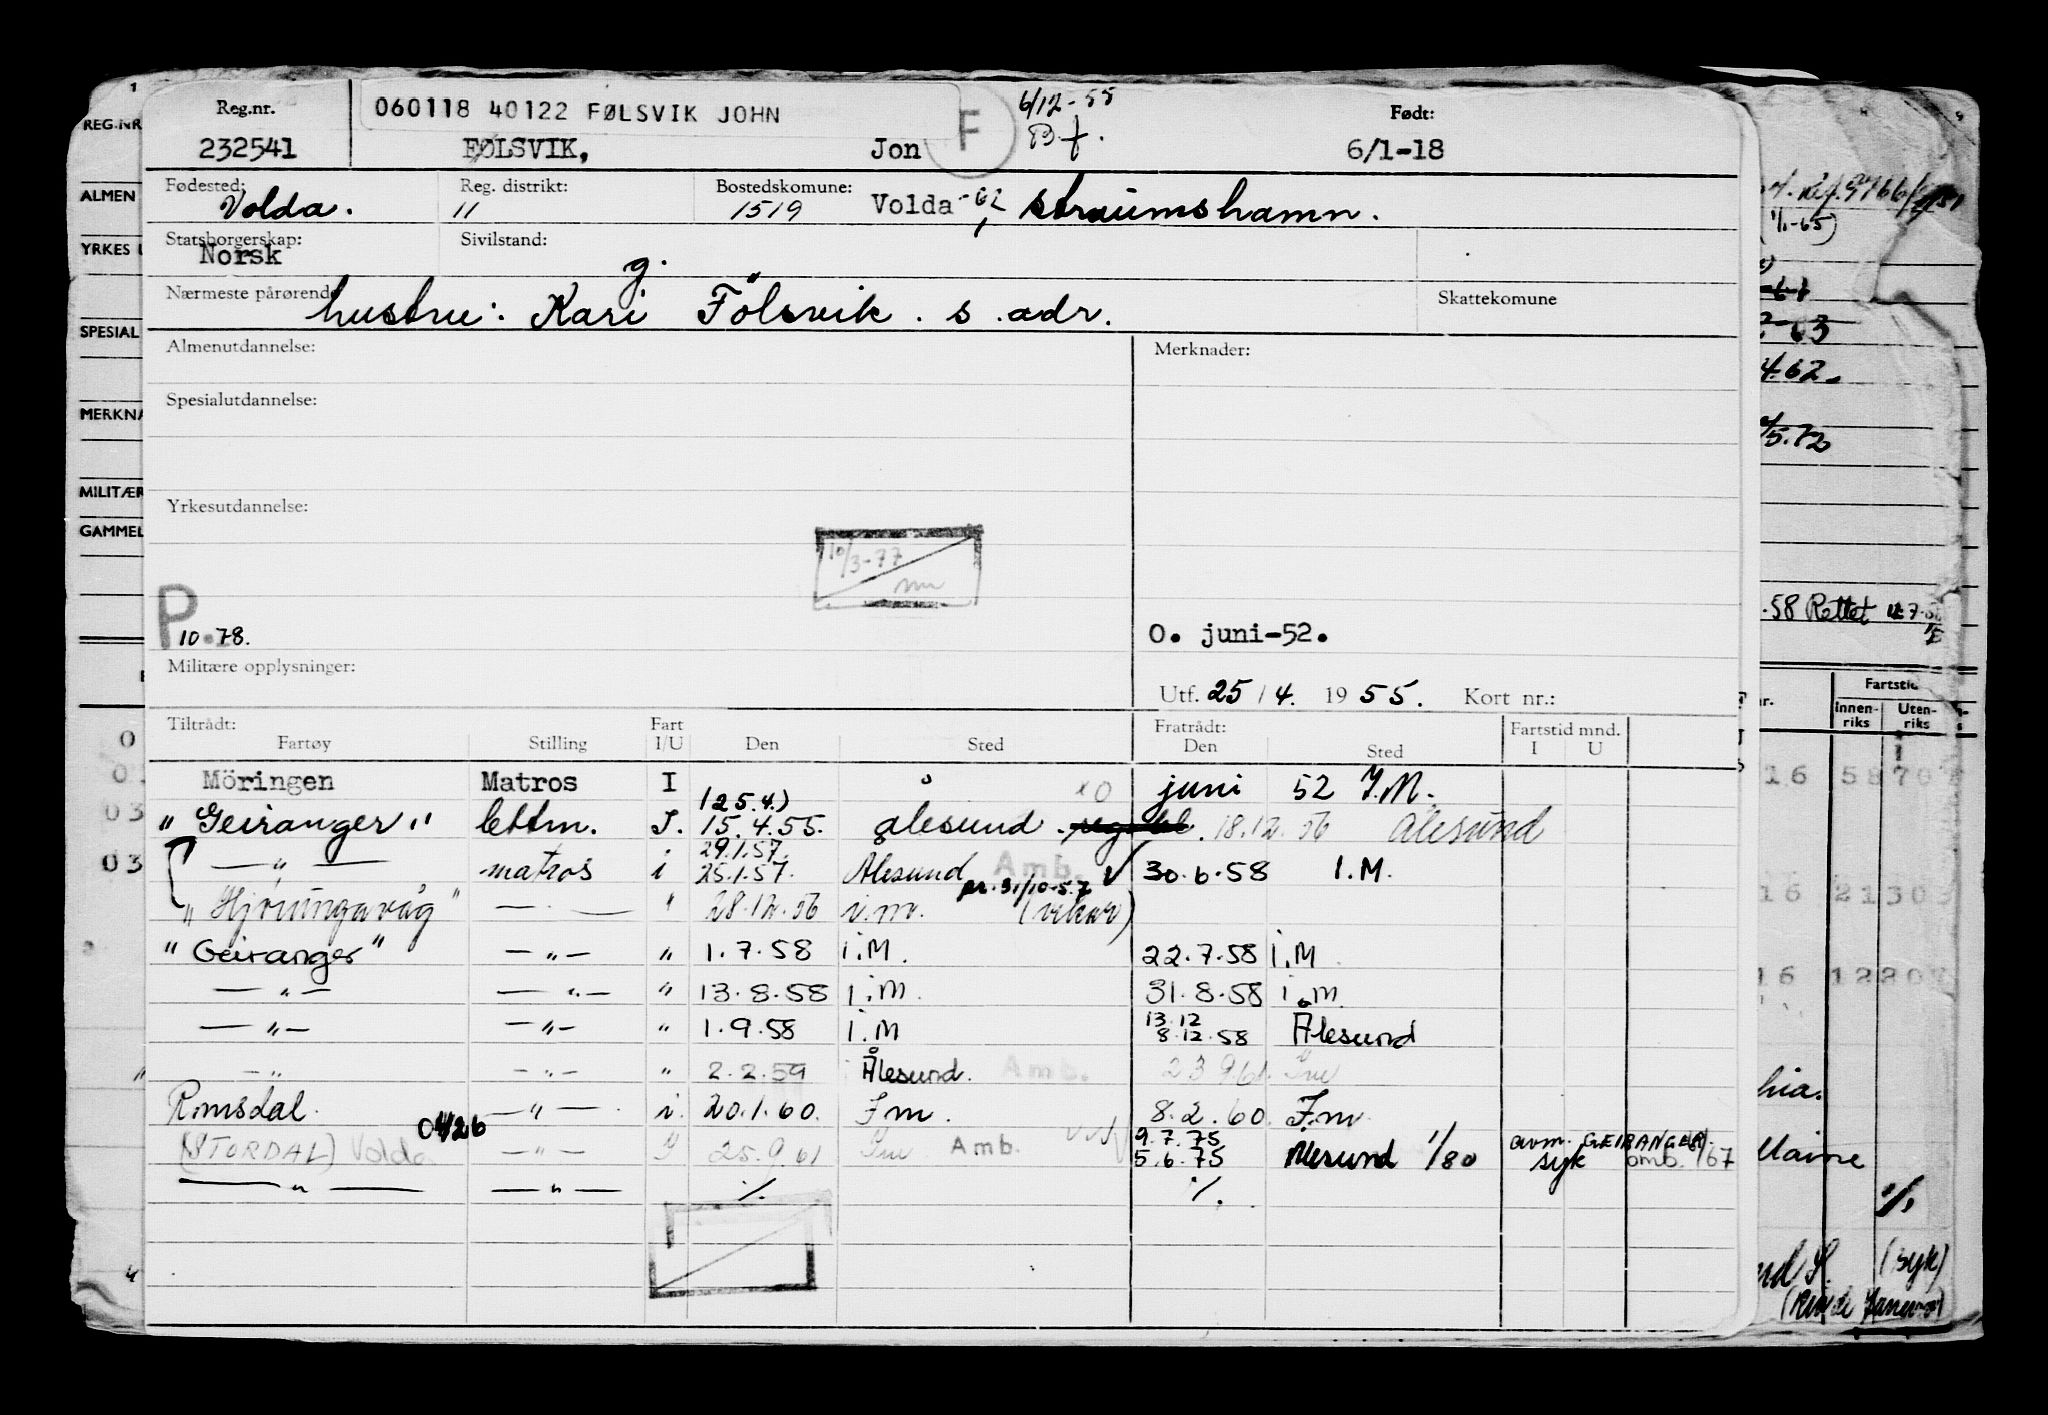 Reg.nr. 060118 40122 FØLSVIK JOHN F 6/12-55 Født:
232541 FØLSVIK, Jon Bf. 6/1-18
Fødested: Reg. distrikt: Bostedskomune:
Volda. 11 1519 Volda -62, straumshamn.
Statsborgerskap: Sivilstand:
Norsk g.
Nærmeste pårørende Skattekomune
hustru: Kari Fölsvik. s. adr.
Almenutdannelse: Merknader:
Spesialutdannelse:
Yrkesutdannelse:
10/3-77
P 10.78. O. juni-52.
Militære opplysninger:
Utf. 25/4. 1955. Kort nr.:
Tiltrådt: Fart Fratrådt: Fartstid mnd.
Fartøy Stilling I/U Den Sted Den Sted I U
Möringen Matros I xo juni 52 I.M.
(25.4.)
"Geiranger" lettm. I. 15.4.55. Ålesund. 18.12.56 Ålesund
29.1.57.
— " — matros i 25.1.57. Ålesund Amb. 30.6.58 I.M.
pr. 31/10-57
"Hjörungavåg" — — " 28.12.56 i.m. (vikar)
"Geiranger" — " — " 1.7.58 i.M. 22.7.58 i.M
— " — — " — " 13.8.58 i.M. 31.8.58 i.M.
13.12
— " — — " — " 1.9.58 i.M 8.12.58 Ålesund
— " — — " — " 2.2.59 Ålesund. Amb. 23.9.61. Im
Romsdal. — " — i. 20.1.60. I m. 8.2.60. I.m.
0426 9.7.75 avm. GEIRANGER.
(STORDAL) Volda — " — I 25.9.61 Im Amb. 5.6.75 Ålesund 1/80 syk omb. /67
— " — — " — ./. ./.
REG.NR
ALMEN
YRKES
SPESIAL
MERKNA
MILITÆR
GAMMEL
03
03
(1/1-65)
63
4.62.
/5.72
.58 Rettet
Fartstid
Innen-riks Uten-riks
16 5870
16 2130
16 1220
hia.
Maine
./.
(syk)
(Rio de Janeiro)